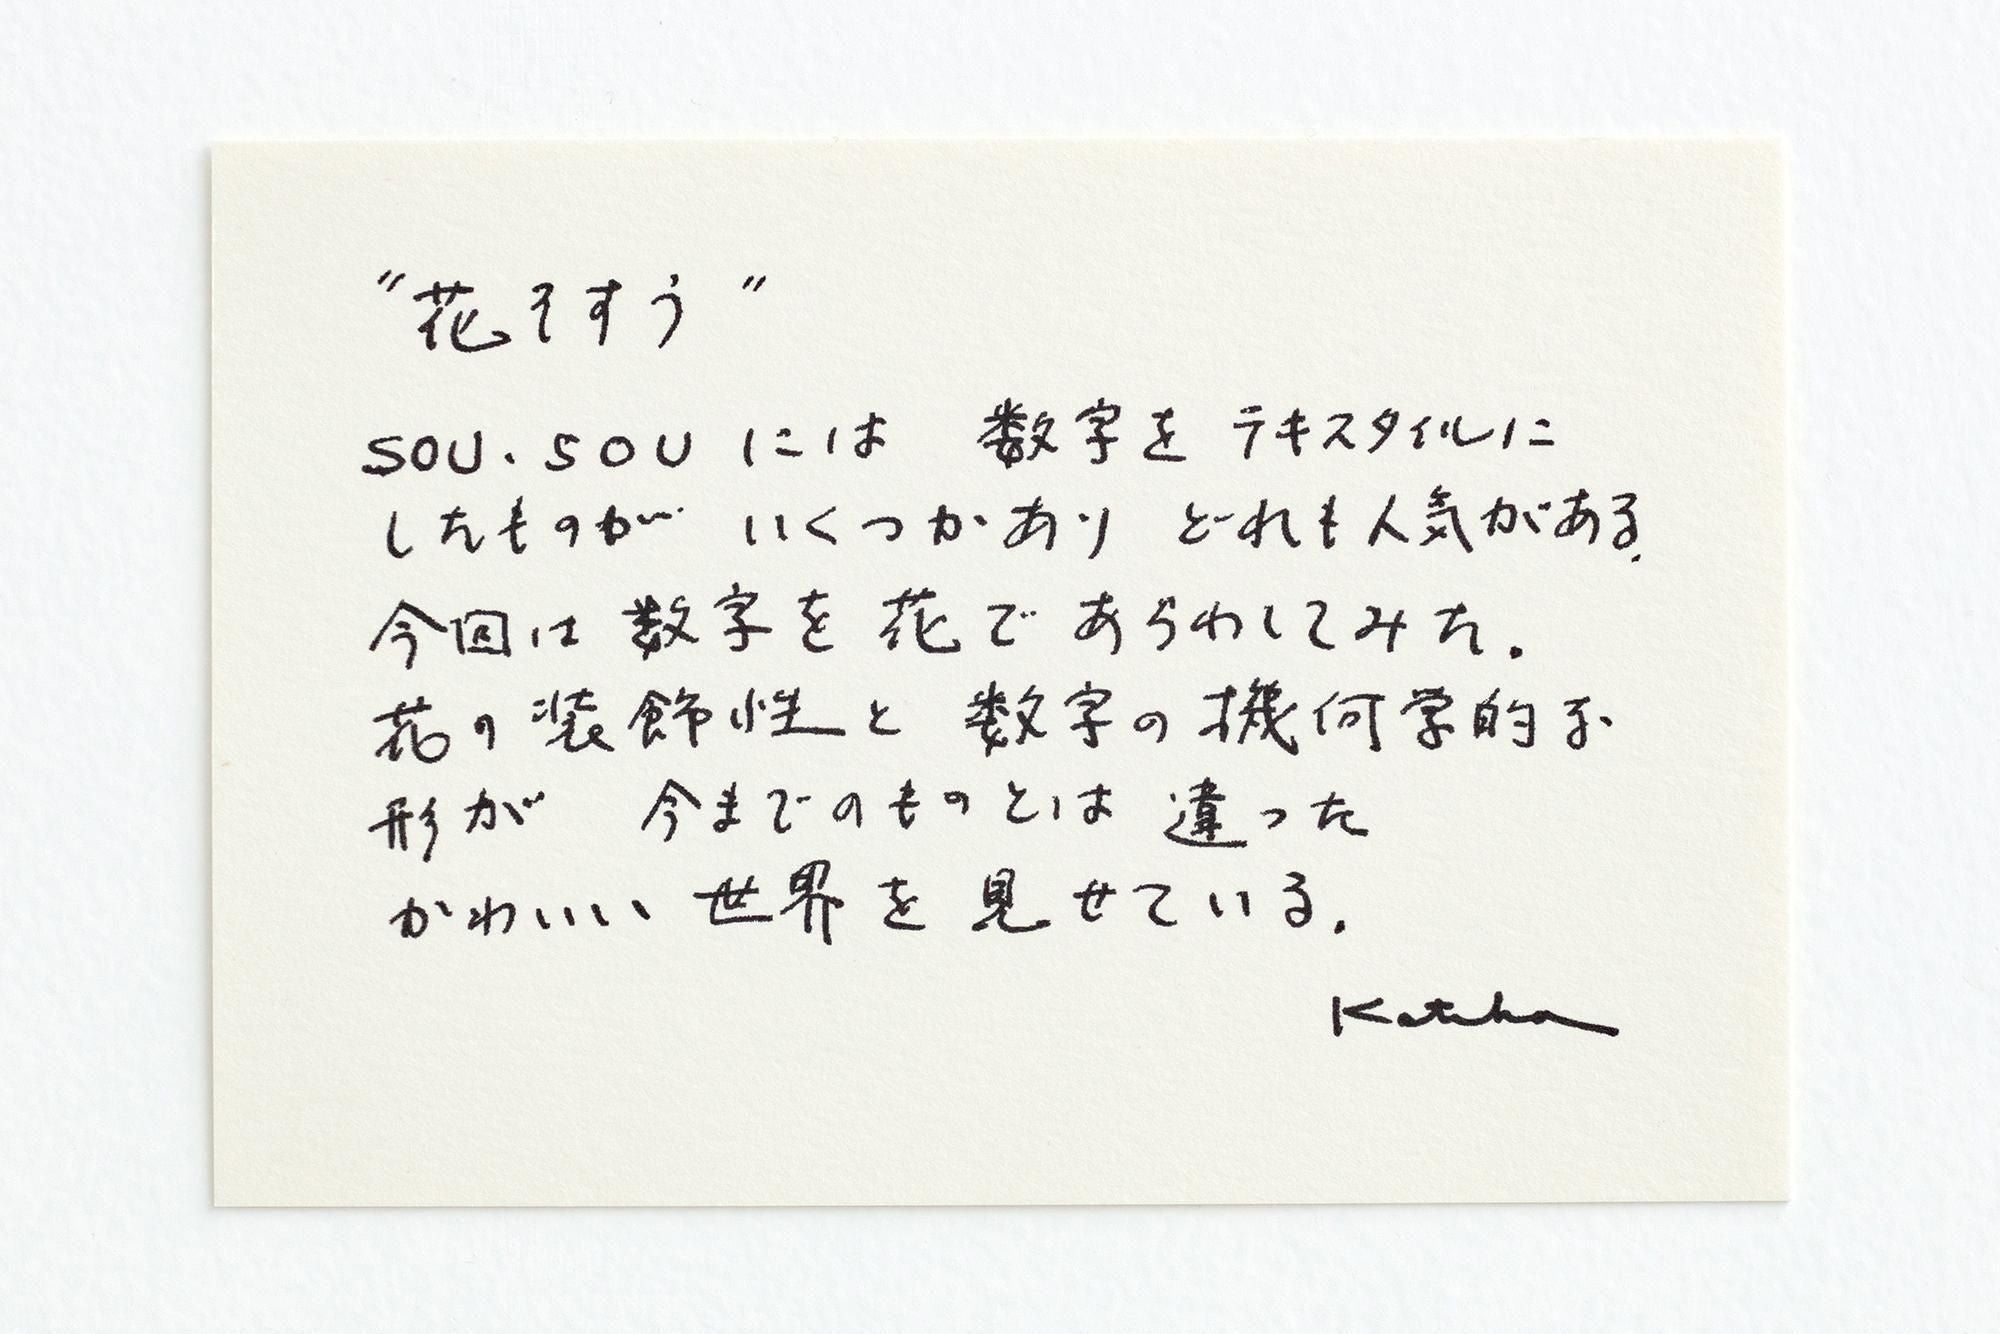 "花そすう"
SOU・SOU には 数字を テキスタイルに
したものが いくつかあり どれも人気がある.
今回は 数字を 花で あらわしてみた.
花の装飾性と 数字の機何学的な
形が 今までのものとは 違った
かわいい 世界を 見せている.